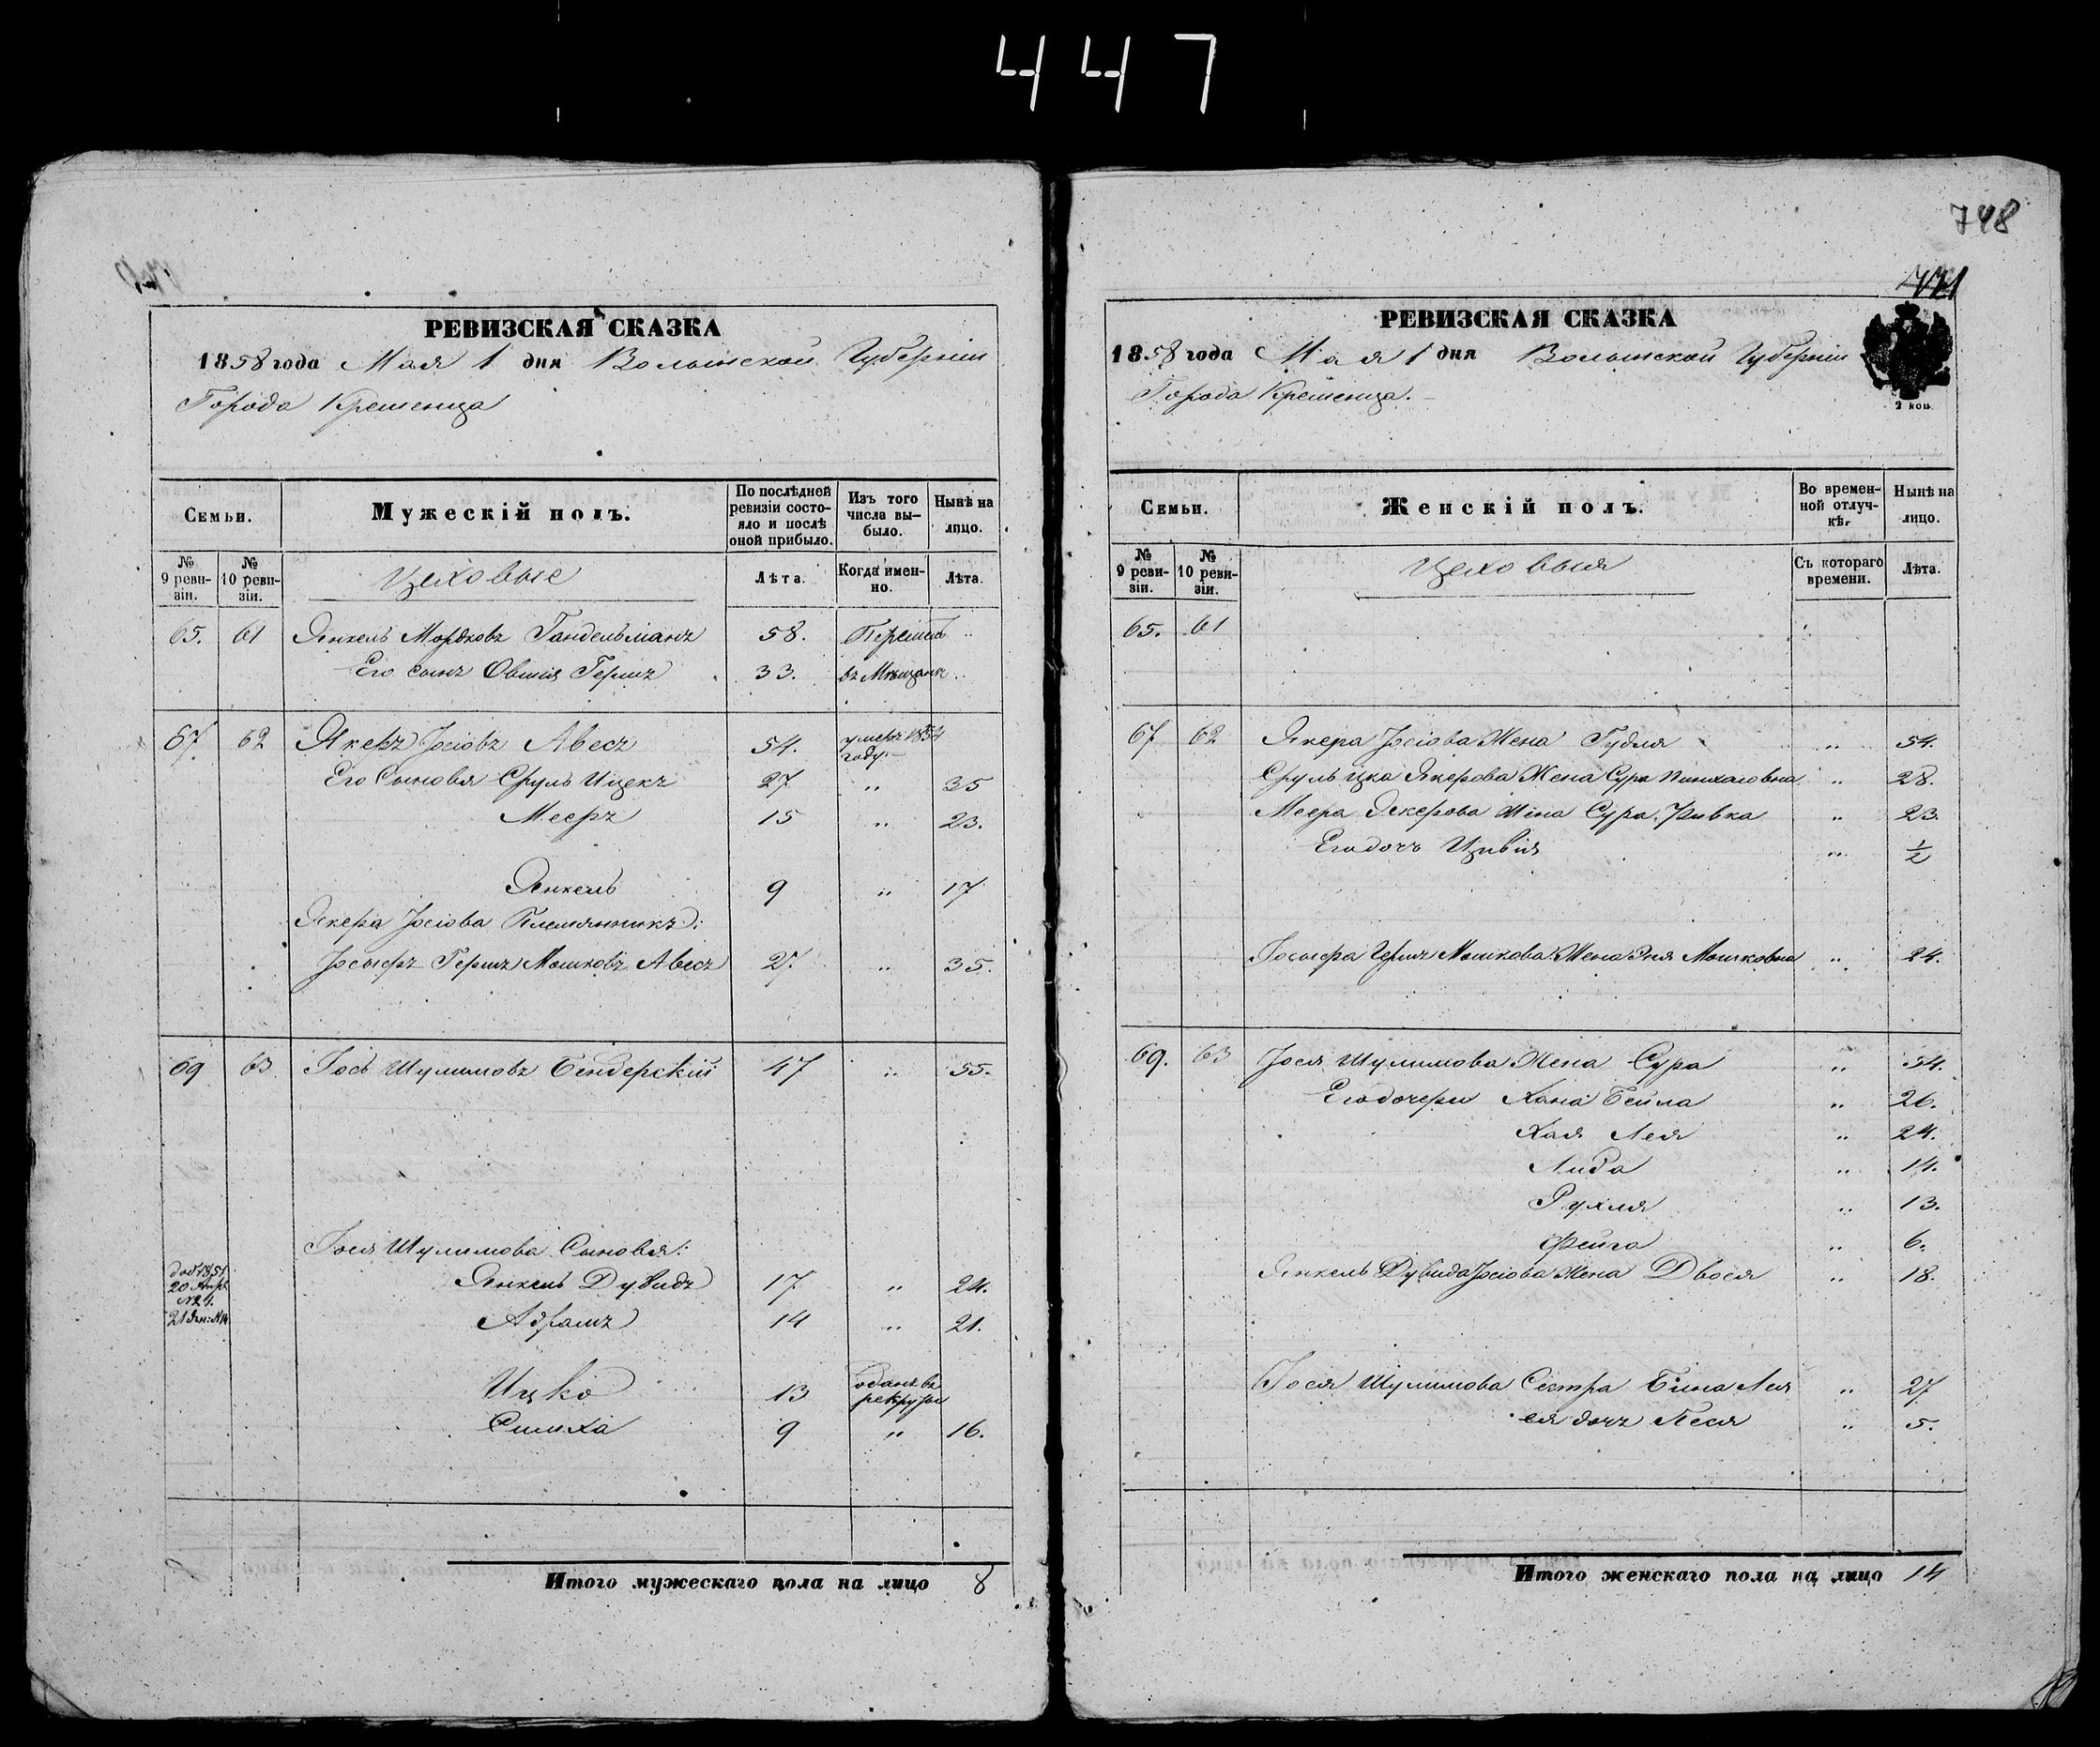 447
748
771
РЕВИЗСКАЯ СКАЗКА
1858 года Мая 1 дня Волынской Губерніи
Города Кременца
Семьи.
Мужескій полъ.
По послѣдней ревизіи состояло и послѣ оной прибыло.
Изъ того числа выбыло.
Нынѣ на лицо.
№ 9 ревизіи.
№ 10 ревизіи.
Цеховые
Лѣта.
Когда именно.
Лѣта.
65. 61 Янкель Мордковъ Гандельманъ 58. Перешли ..
Его сынъ Овшія Гершъ 33. въ Мѣщане ..
67 62 Якеръ Іосіовъ Авесъ 54. умеръ 1854 году.
Его Сыновья Сруль Ицекъ 27 .. 35
Мееръ 15 .. 23.
Янкель 9 .. 17
Якера Іосіова Племянникъ:
Іосыфъ Гершъ Мошковъ Авесъ 27. .. 35.
69 63 Іось Шулимовъ Бендерскій 47 .. 55.
Іося Шулимова Сыновья:
доб 1851
20 Апр.
№ 24.
21 Ян: №14
Янкель Дувидъ 17 .. 24.
Абрамъ 14 .. 21.
Ицко 13 отданъ въ рекруты
Симха 9 .. 16.
Итого мужескаго пола на лицо 8
РЕВИЗСКАЯ СКАЗКА
1858 года Мая 1 дня Волынской Губерніи
Города Кременца.
2 коп
Семьи.
Женскій полъ.
Во временной отлучкѣ.
Нынѣ на лицо.
№ 9 ревизіи.
№ 10 ревизіи.
Цеховыя
Съ котораго времени.
Лѣта.
65. 61
67 62 Якера Іосіова Жена Гудля .. 54.
Сруль Ицка Якерова Жена Сура Пинхасовна .. 28.
Меера Якерова Жена Сура Ривка .. 23.
Его дочь Цивія .. 1/2
Іосыфа Герша Мошкова Жена Эня Мошковна .. 24.
69. 63 Іося Шулимова Жена Сура .. 54.
Его дочери Хана Бейла .. 26.
Хая Лея .. 24.
Либа .. 14.
Рухля .. 13.
Фейга .. 6.
Янкель Дувида Іосіова Жена Двося .. 18.
Іося Шулимова Сестра Бина Лея .. 27
ея дочь Песя .. 5.
Итого женскаго пола на лицо 14